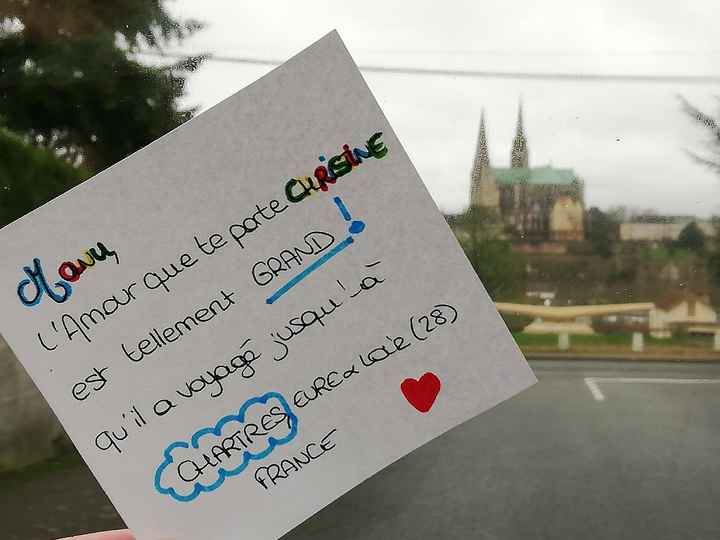 Manu,
L'Amour que te porte CHRISTINE
est tellement GRAND !
qu'il a voyagé jusqu'à
CHARTRES, EURE & LOIR (28)
FRANCE